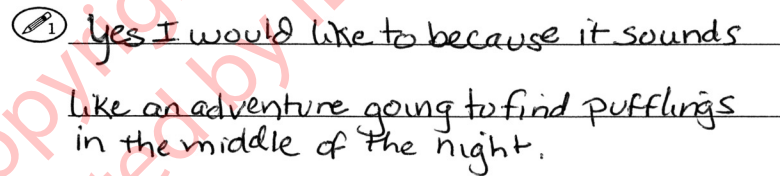 1 yes I would like to because it sounds
like an adventure going to find pufflings
in the middle of the night.